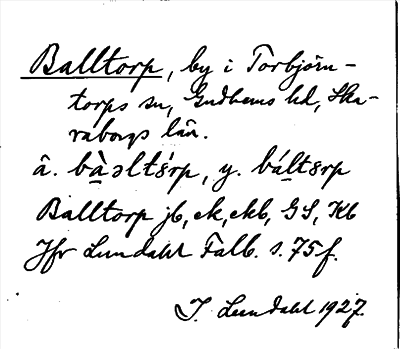 Balltorp, by i Torbjörn-
torps sn, Gudhems hd, Ska-
raborgs län.
ä. bàəltśrp, y. báltsrp
Balltorp jb, ek, ekb, GS, Kb
Jfr Lundahl Falb. s. 75 f.
I. Lundahl 1927.